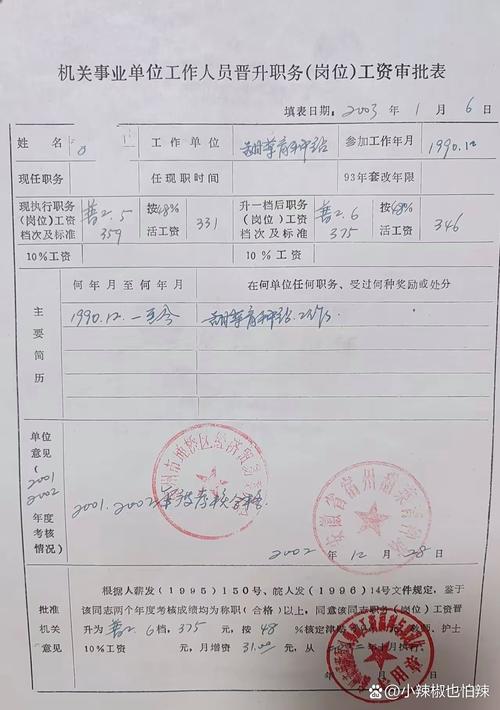 机关事业单位工作人员晋升职务(岗位)工资审批表
填表日期：2003 年 1 月 6 日
姓 名 工作单位 参加工作年月 1990.12
现任职务 任现职时间 93年套改年限
现执行职务(岗位)工资档次及标准 普2.5 359 按48%活工资 331 升一档后职务(岗位)工资档次及标准 普2.6 375 按48%活工资 346
10%工资 10%工资
主要简历 何年月至何年月 在何单位任何职务、受过何种奖励或处分
1990.12.一至今
单位意见(2001 2002年度考核情况)
2001.2002年度考核合格
安徽省宿州
2002 年 12 月 28 日
批准机关意见
根据人薪发(1995)150号、皖人发(1996)14号文件规定，鉴于
该同志两个年度考核成绩均为称职(合格)以上，同意该同志职务(岗位)工资晋
升为普2.6档，375元，按48%核定津贴 护士
10%工资 元，月增资31.00元，从 月执行。
知乎 @小辣椒也怕辣